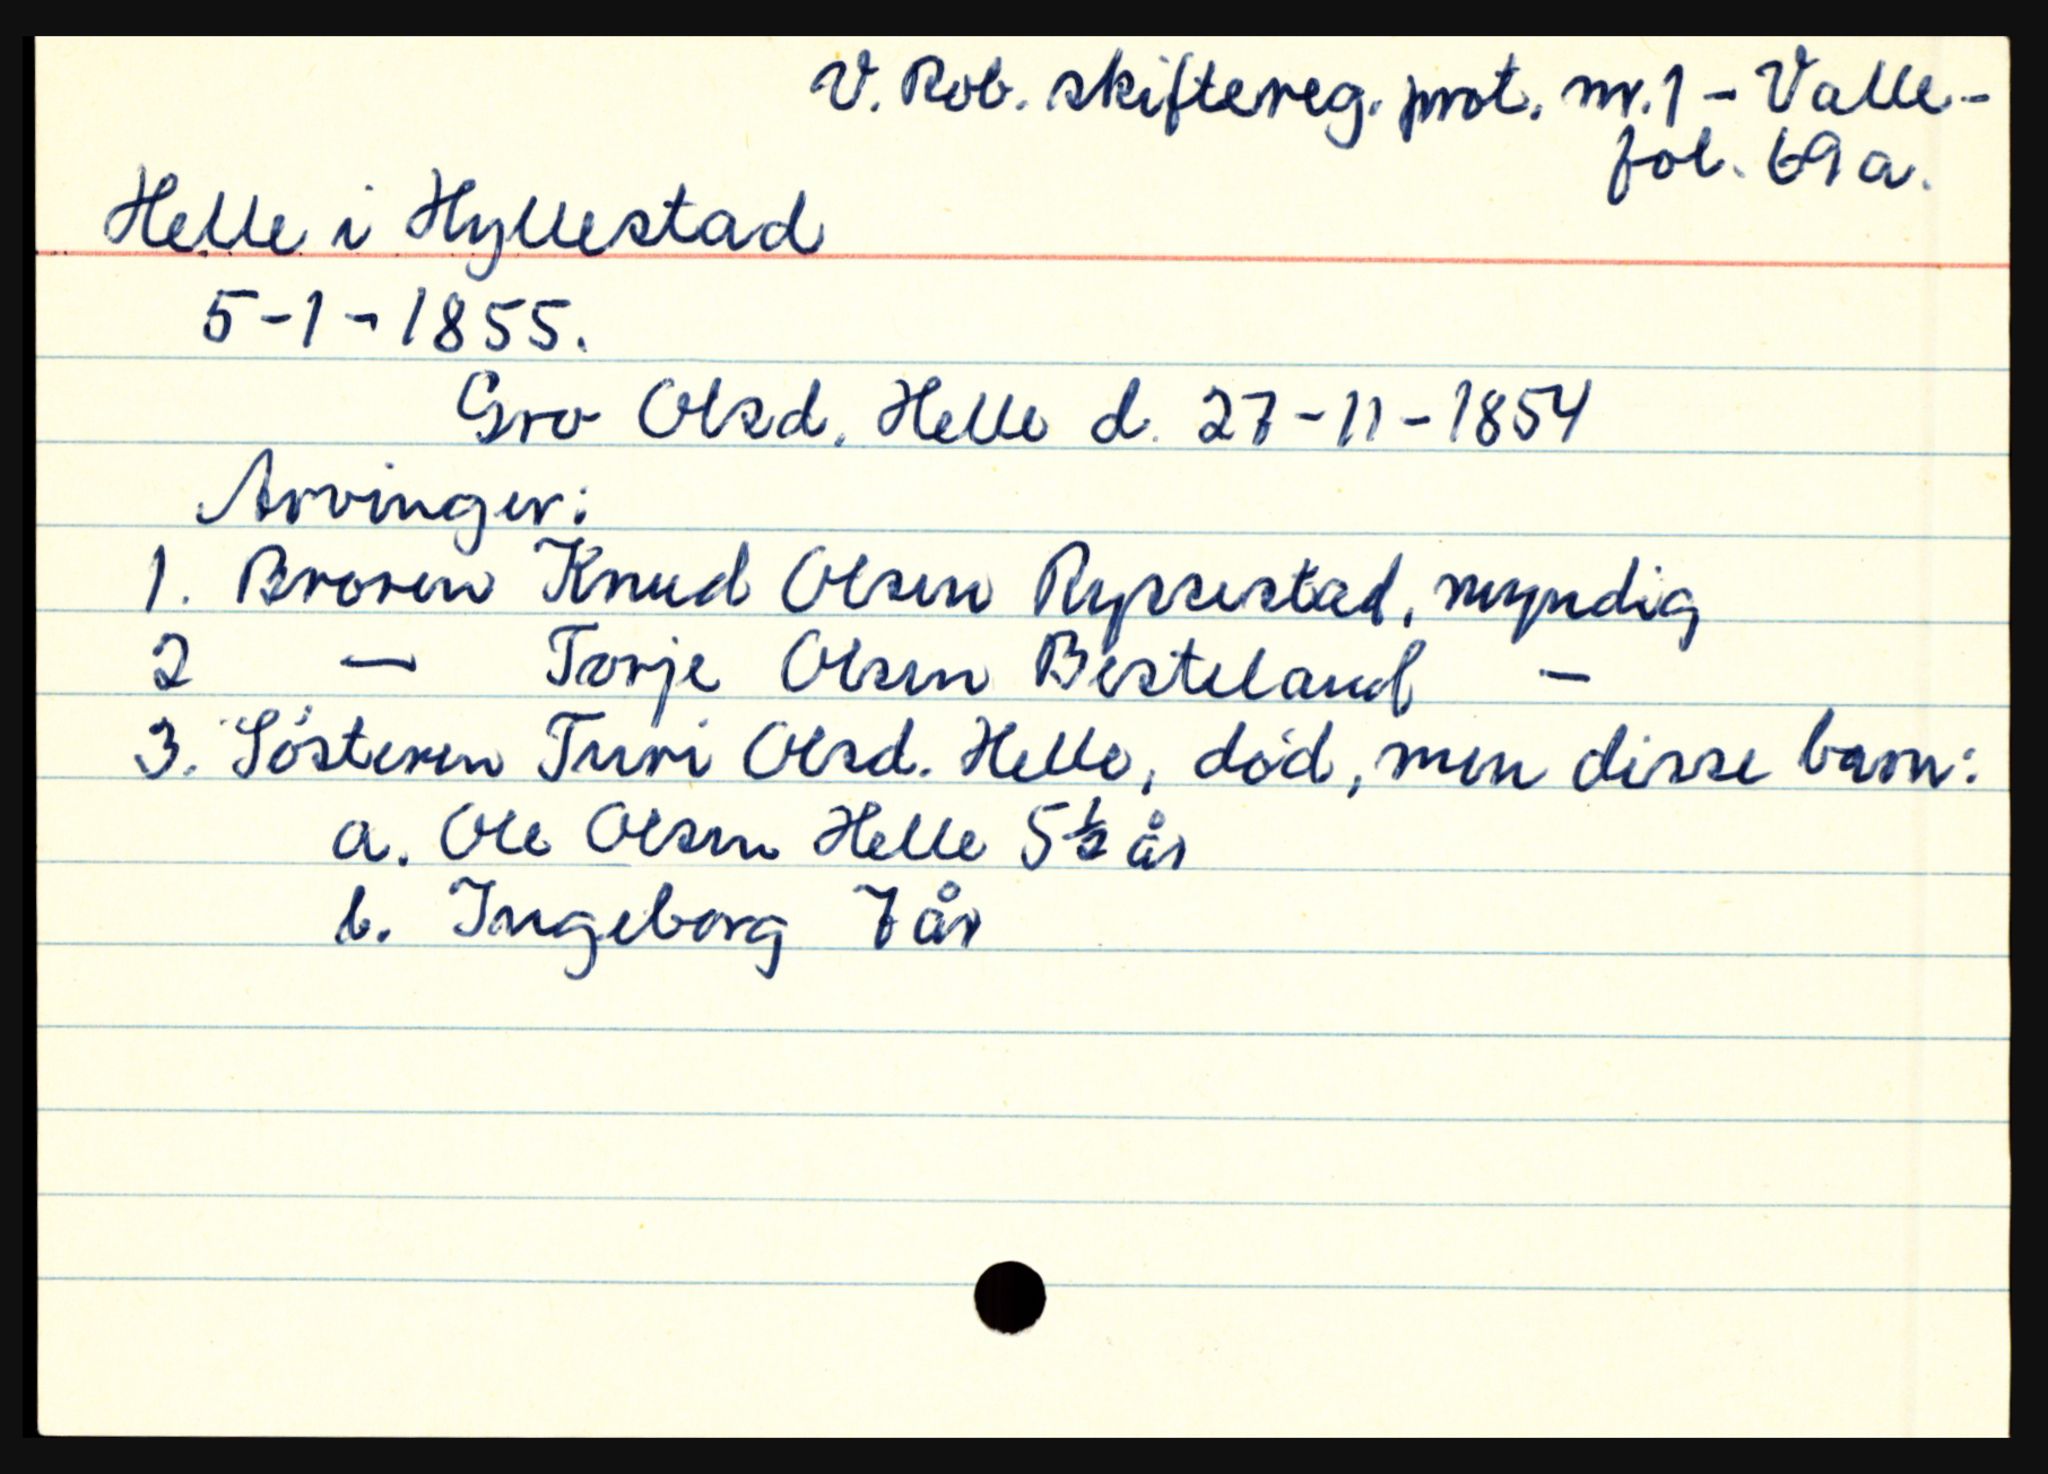 V. Rob. skiftereg. prot. nr. 1 - Valle -
fol. 69a.
Helle i Hyllestad
5-1-1855.
Gro Olsd. Helle d. 27-11-1854
Arvinger:
1. Broren Knud Olsen Ryssestad, myndig
2 — Torje Olsen Besteland —
3. Søsteren Turi Olsd. Helle, død, men disse barn:
a. Ole Olsen Helle 5½ år
b. Ingeborg 7 år